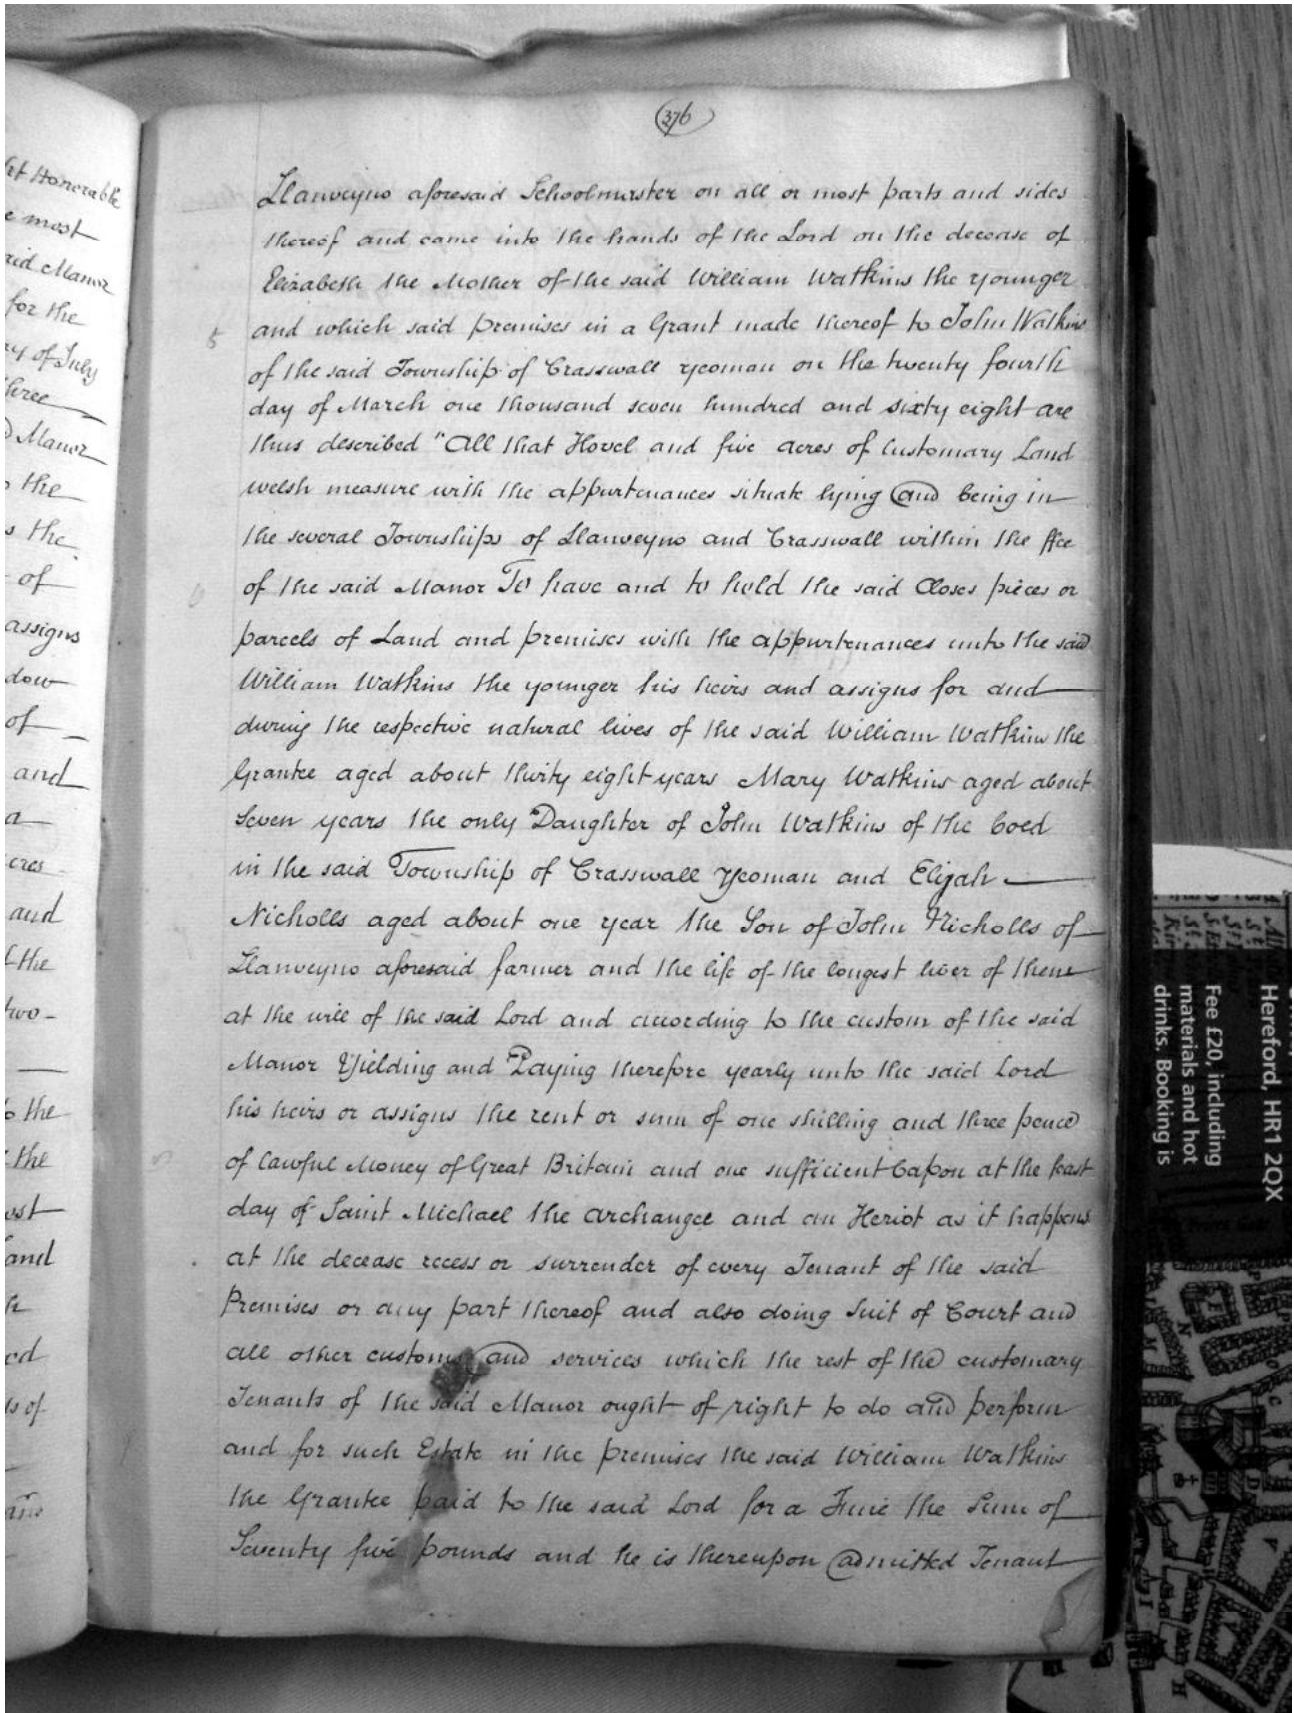 376
Llanveyno aforesaid Schoolmaster on all or most parts and sides
thereof and came into the hands of the Lord on the decease of
Elizabeth the Mother of the said William Watkins the younger
and which said premises in a Grant made thereof to John Watkins
of the said Township of Crasswall yeoman on the twenty fourth
day of March one thousand seven hundred and sixty eight are
thus described "All that Hovel and five acres of Customary Land
welsh measure with the appurtenances situate lying and being in
the several Townships of Llanveyno and Crasswall within the ffee
of the said Manor To have and to hold the said Closes pieces or
parcels of Land and premises with the appurtenances unto the said
William Watkins the younger his heirs and assigns for and
during the respective natural lives of the said William Watkins the
Grantee aged about thirty eight years Mary Watkins aged about
Seven years the only Daughter of John Watkins of the Coed
in the said Township of Crasswall Yeoman and Elijah
Nicholls aged about one year the Son of John Nicholls of
Llanveyno aforesaid farmer and the life of the longest liver of them
at the will of the said Lord and according to the custom of the said
Manor Yielding and Paying therefore yearly unto the said Lord
his heirs or assigns the rent or sum of one shilling and three pence
of lawful Money of Great Britain and one sufficient Capon at the feast
day of Saint Michael the Archangel and an Heriot as it happens
at the decease recess or surrender of every Tenant of the said
Premises or any part thereof and also doing Suit of Court and
all other customs and services which the rest of the customary
Tenants of the said Manor ought of right to do and perform
and for such Estate in the premises the said William Watkins
the Grantee paid to the said Lord for a Fine the Sum of
Seventy five pounds and he is thereupon admitted Tenant
ht Honorable
e most
aid Manor
for the
ay of July
three
Manor
the
the
of
assigns
dow
of
and
a
cres
and
the
two
the
the
ost
and
ed
of
Hereford, HR1 2QX
Fee £20, including
materials and hot
drinks. Booking is